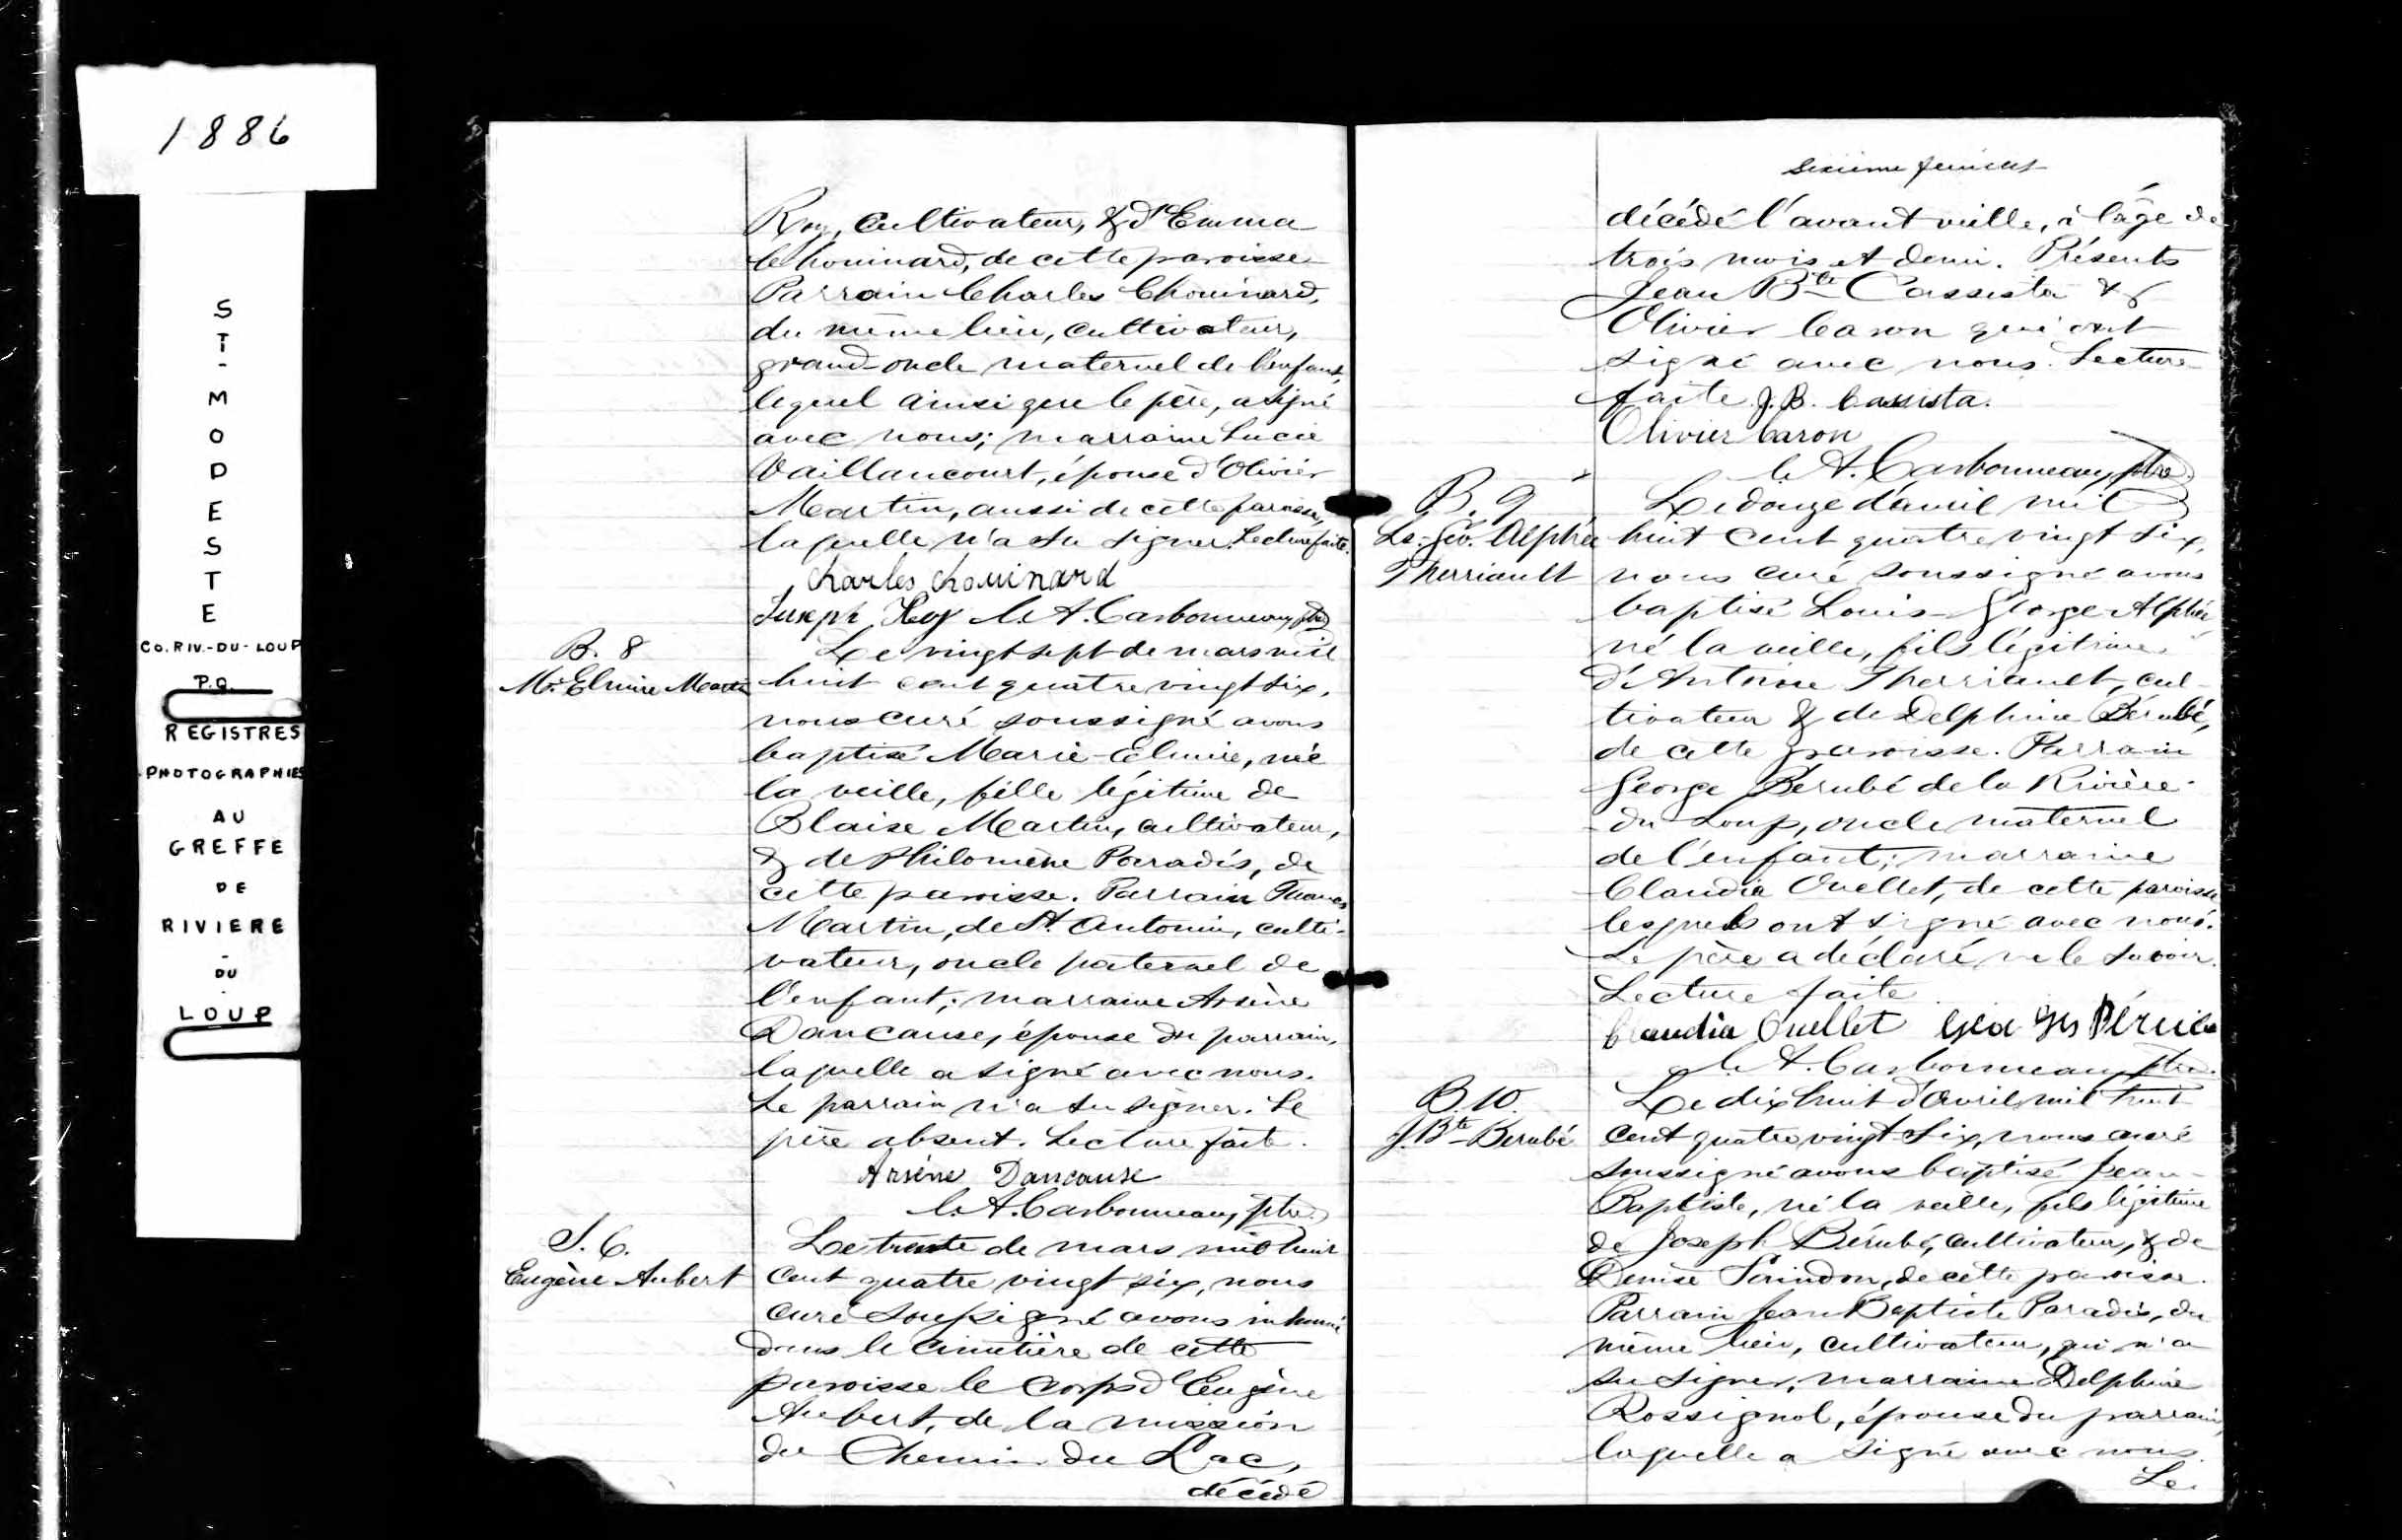 1886
ST-MODESTE
CO. RIV.-DU-LOUP
P.Q.
REGISTRES
PHOTOGRAPHIES
AU
GREFFE
DE
RIVIERE
-
DU
-
LOUP
Roy, cultivateur, & d'Emma
Chouinard, de cette paroisse
Parrain Charles Chouinard,
du même lieu, cultivateur,
grand-oncle maternel de l'enfant,
lequel ainsi que le père, a signé
avec nous; marraine Lucie
Vaillancourt, épouse d'Olivier
Martin, aussi de cette paroisse,
laquelle n'a su signer. Lecture faite.
Charles Chouinard
Joseph Roy C. A. Carbonneau, ptre
B. 8
Me. Elmire Martin
Le vingt sept de mars mil
huit cent quatre vingt six,
nous curé soussigné avons
baptisé Marie-Elmire, née
la veille, fille légitime de
Blaise Martin, cultivateur,
& de Philomène Paradis, de
cette paroisse. Parrain
Martin, de St. Antonin, culti-
vateur, oncle paternel de
l'enfant; marraine Arsène
Dancause, épouse du parrain,
laquelle a signé avec nous.
Le parrain n'a su signer. Le
père absent. Lecture faite.
Arsène Dancause
C. A. Carbonneau, ptre.
S. 6.
Eugène Aubert
Le trente de mars mil huit
cent quatre vingt six, nous
curé soussigné avons inhumé
dans le cimetière de cette
paroisse le corps d'Eugène
Aubert, de la mission
du Chemin du Lac,
décédé
sixième feuillet
décédé l'avant veille, à l'âge de
trois mois et demi. Présents
Jean Bte Cassista &
Olivier Caron qui ont
signé avec nous. Lecture
faite J. B. Cassista.
Olivier Caron
C. A. Carbonneau, ptre.
B. 9
Ls. Geo. Alphée
Therriault
Le douze d'avril mil
huit cent quatre vingt six,
nous curé soussigné avons
baptisé Louis-George Alphée
né la veille, fils légitime
d'Antoine Therriault, cul-
tivateur & de Delphine Bérubé,
de cette paroisse. Parrain
George Bérubé de la Rivière-
du-Loup, oncle maternel
de l'enfant; marraine
Claudia Ouellet, de cette paroisse
lesquels ont signé avec nous.
Le père a déclaré ne le savoir.
Lecture faite
Claudia Ouellet
C. A. Carbonneau, ptre.
B. 10.
J. Bte Berubé
Le dix huit d'avril mil huit
cent quatre vingt six, nous curé
soussigné avons baptisé Jean-
Baptiste, né la veille, fils légitime
de Joseph Bérubé, cultivateur, & de
Denise Sirindon, de cette paroisse.
Parrain Jean Baptiste Paradis, du
même lieu, cultivateur, qui n'a
su signer, marraine Delphine
Rossignol, épouse du parrain,
laquelle a signé avec nous.
Le